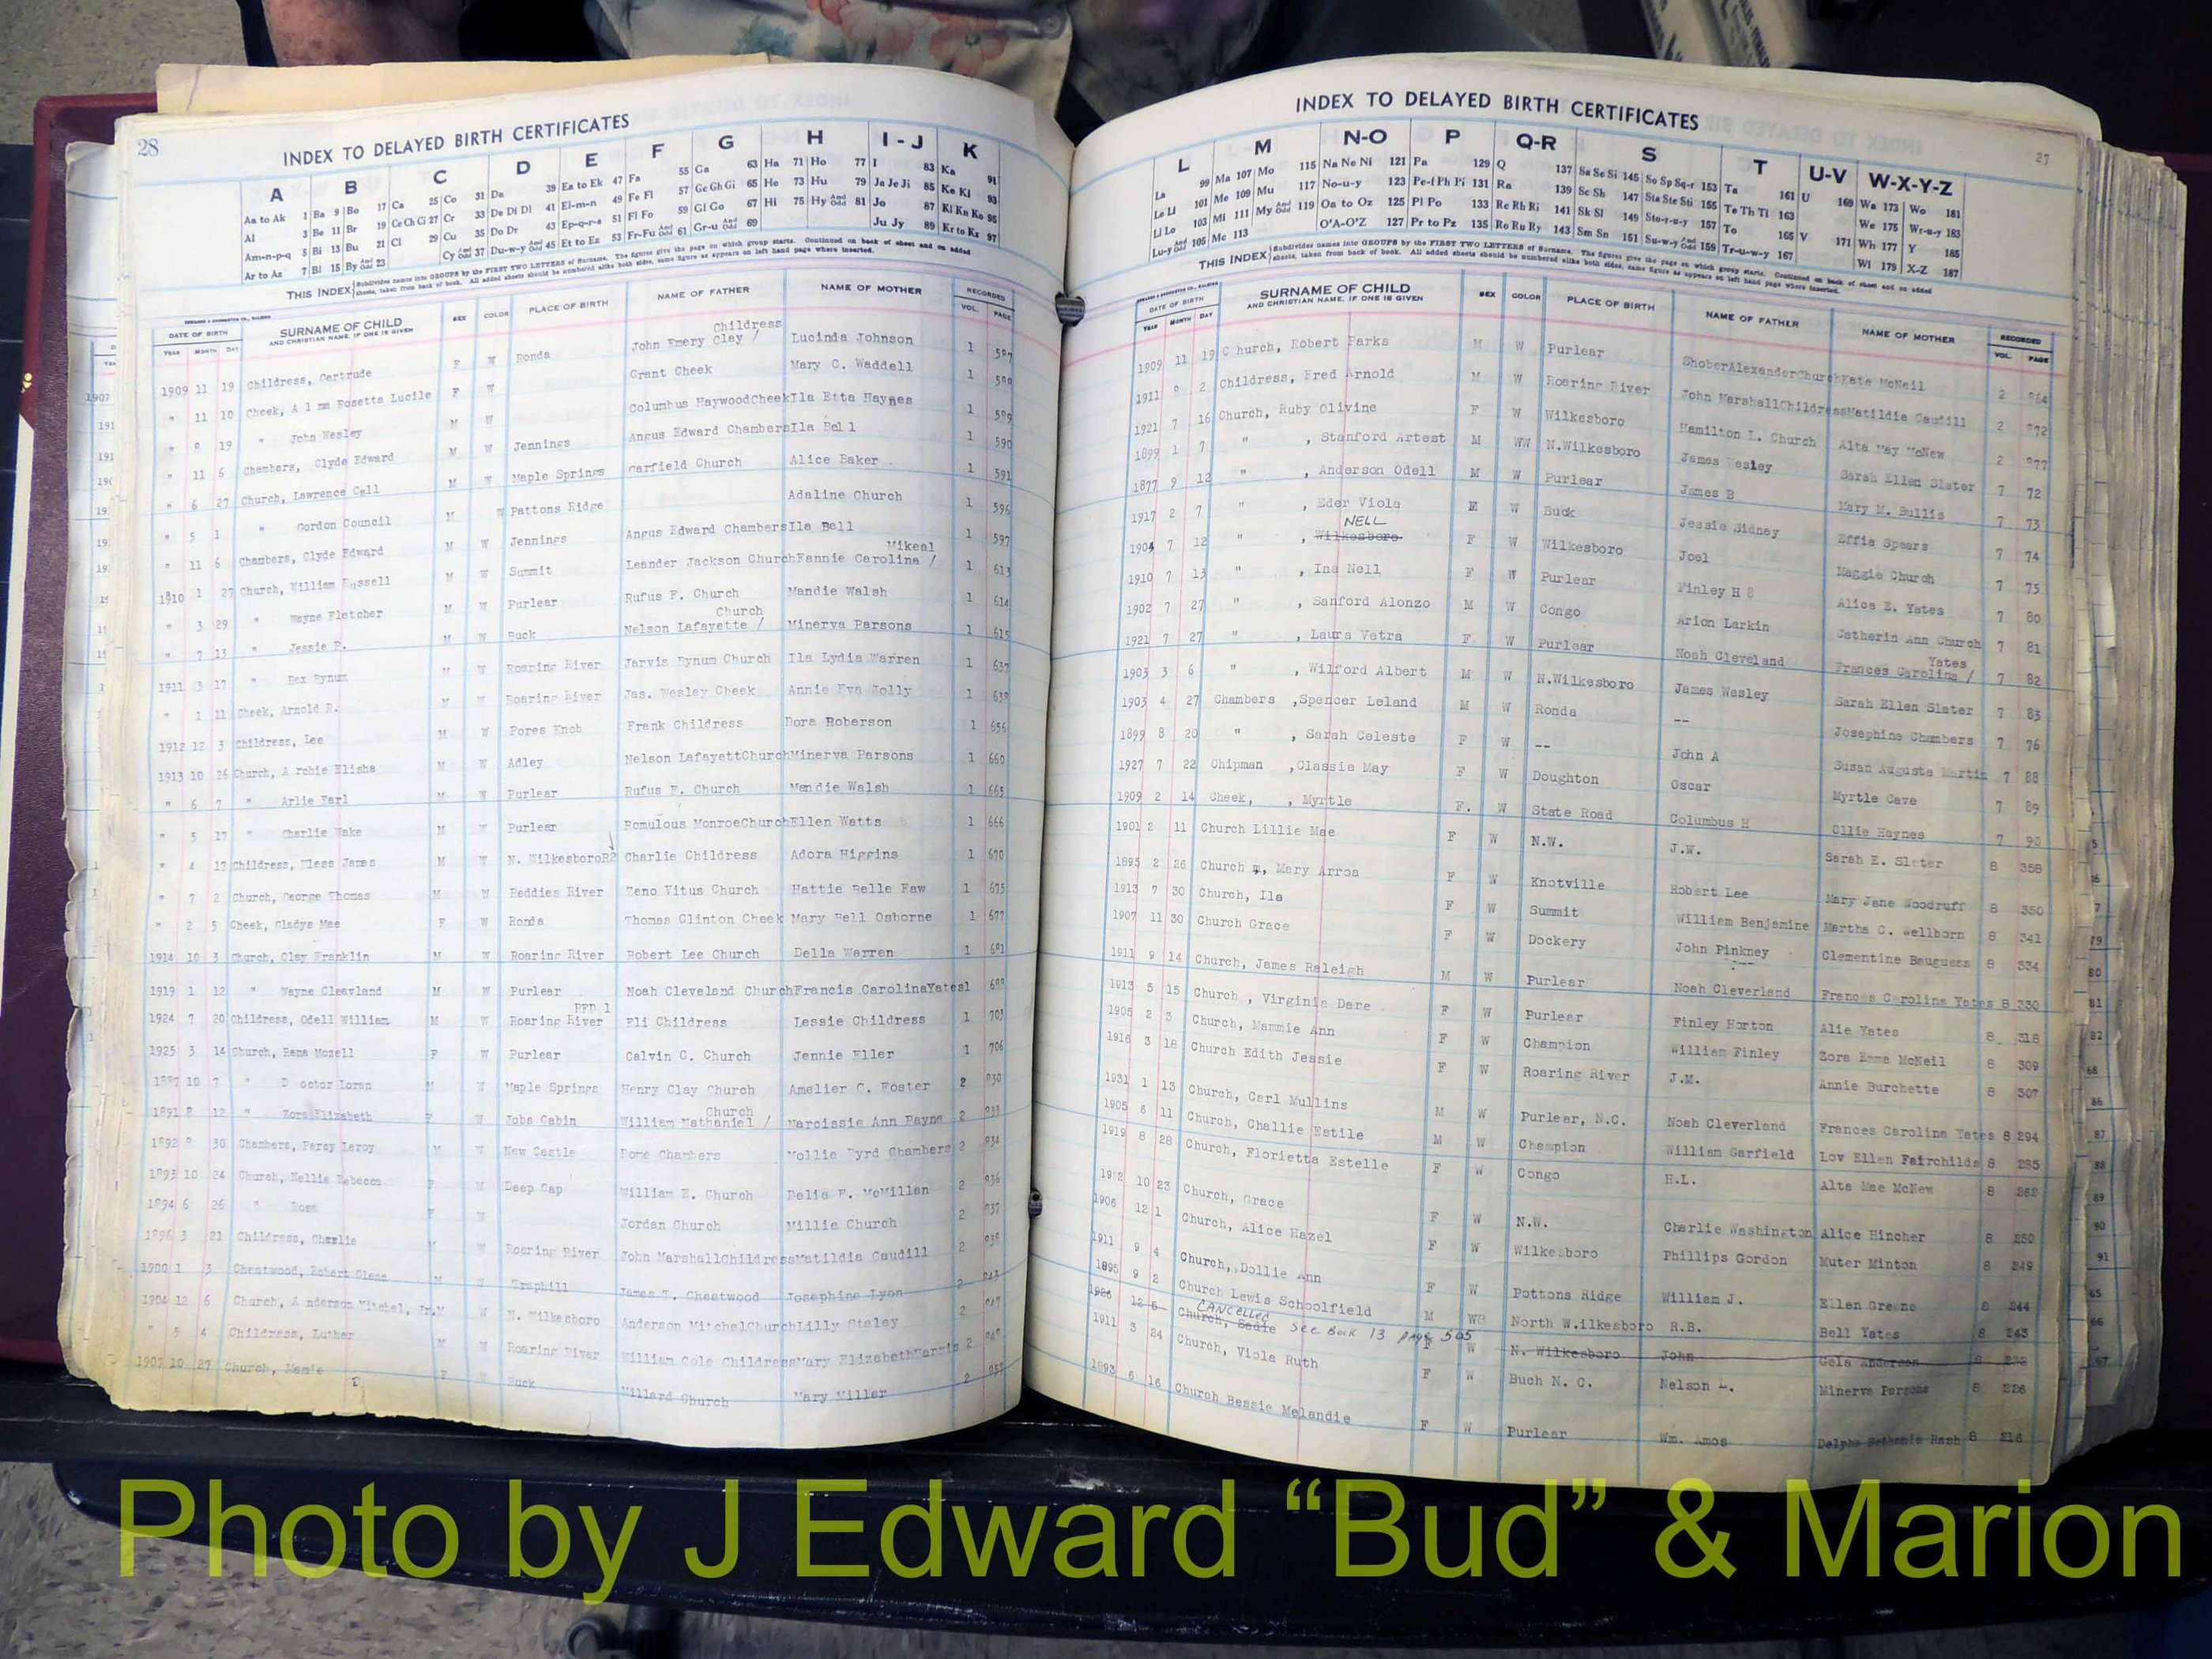 28
INDEX TO DELAYED BIRTH CERTIFICATES
A B C D E F G H I - J K
Aa to Ak 1 Ba 9 Bo 17 Ca 25 Co 31 Da 39 Ea to Ek 47 Fa 55 Ga 63 Ha 71 Ho 77 I 83 Ka 91
Al 3 Be 11 Br 19 Ce Ch Ci 27 Cr 33 De Di Dl 41 El-m-n 49 Fe Fi 57 Ge Gh Gi 65 He 73 Hu 79 Ja Je Ji 85 Ke Ki 93
Am-n-p-q 5 Bi 13 Bu 21 Cl 29 Cu 35 Do Dr 43 Ep-q-r-s 51 Fl Fo 59 Gl Go 67 Hi 75 Hy And Odd 81 Jo 87 Kl Kn Ko 95
Ar to Az 7 Bl 15 By And Odd 23 Cy And Odd 37 Du-w-y And Odd 45 Et to Ez 53 Fr-Fu And Odd 61 Gr-u And Odd 69 Ju Jy 89 Kr to Kz 97
THIS INDEX Subdivides names into GROUPS by the FIRST TWO LETTERS of Surname. The figures give the page on which group starts. Continued on back of sheet and on added
sheets, taken from back of book. All added sheets should be numbered alike both sides, same figure as appears on left hand page where inserted.
DATE OF BIRTH SURNAME OF CHILD SEX COLOR PLACE OF BIRTH NAME OF FATHER NAME OF MOTHER RECORDED
YEAR MONTH DAY AND CHRISTIAN NAME, IF ONE IS GIVEN VOL. PAGE
Childress
1909 11 19 Childress, Gertrude F W Ronda John Emery Clay / Lucinda Johnson 1 587
" 11 10 Cheek, A l ma Rosetta Lucile F W Grant Cheek Mary C. Waddell 1
" 8 19 " John Wesley M W Columbus HaywoodCheek Ila Etta Haynes 1 589
" 11 6 Chambers, Clyde Edward M W Jennings Angus Edward Chambers Ila Bell 1 590
" 6 27 Church, Lawrence Call M W Maple Springs Garfield Church Alice Baker 1 591
" 5 1 " Gordon Council M W Pattons Ridge Adaline Church 1 596
" 11 6 Chambers, Clyde Edward M W Jennings Angus Edward Chambers Ila Bell 1 597
Mikeal
1910 1 27 Church, William Russell M W Summit Leander Jackson Church Fannie Carolina / 1 613
" 3 29 " Wayne Fletcher M W Purlear Rufus F. Church Mandie Walsh 1 614
Church
" 7 13 " Jessie R. M W Buck Nelson Lafayette / Minerva Parsons 1 615
1911 3 17 " Rex Bynum M W Roaring River Jarvis Bynum Church Ila Lydia Warren 1 637
" 1 11 Cheek, Arnold R. M W Roaring River Jas. Wesley Cheek Annie Eva Jolly 1 639
1912 12 3 Childress, Lee M W Pores Knob Frank Childress Dora Roberson 1 656
1913 10 26 Church, A rchie Elisha M W Adley Nelson LafayettChurch Minerva Parsons 1 660
" 6 7 " Arlie Earl M W Purlear Rufus F. Church Mandie Walsh 1 665
" 5 17 " Charlie Wake M W Purlear Romulous MonroeChurch Ellen Watts 1 666
" 4 17 Childress, Bless James M W N. WilkesboroR2 Charlie Childress Adora Higgins 1 670
" 7 2 Church, George Thomas M W Reddies River Zeno Vitus Church Hattie Belle Faw 1 675
" 2 5 Cheek, Gladys Mae F W Ronda Thomas Clinton Cheek Mary Bell Osborne 1 677
1914 10 3 Church, Clay Franklin M W Roaring River Robert Lee Church Della Warren 1 681
1919 1 12 " Wayne Cleavland M W Purlear Noah Cleveland Church Francis CarolinaYates 1
RFD 1
1924 7 20 Childress, Odell William M W Roaring River Eli Childress Lessie Childress 1 703
1925 3 14 Church, Rena Mozell F W Purlear Calvin C. Church Jennie Eller 1 706
1887 10 7 " D octor Loran M W Maple Springs Henry Clay Church Amelier C. Foster 2 830
Church
1891 8 12 " Zora Elizabeth F W Jobs Cabin William Nathaniel / Narcissie Ann Payne 2 833
1892 8 30 Chambers, Percy Leroy M W New Castle Rome Chambers Mollie Byrd Chambers 2 834
1893 10 24 Church, Nellie Rebecca F W Deep Gap William E. Church Delia F. McMillan 2 836
1894 6 26 " Rosa F W Jordan Church Millie Church 2 837
1896 3 21 Childress, Charlie M W Roaring River John MarshallChildress Matildia Caudill 2 838
1900 1 3 Cheatwood, Robert Glenn M W Traphill James T. Cheatwood Josephine Lyon 2 843
1904 12 6 Church, A nderson Mitchel, Jr.M W N. Wilkesboro Anderson MitchelChurch Lilly Staley 2 847
" 5 4 Childress, Luther M W Roaring River William Cole Childress Mary ElizabethHarris 2
1907 10 27 Church, Mamie F W Buck Millard Church Mary Miller 2 857
27
INDEX TO DELAYED BIRTH CERTIFICATES
L M N-O P Q-R S T U-V W-X-Y-Z
La 99 Ma 107 Mo 115 Na Ne Ni 121 Pa 129 Q 137 Sa Sc Si 145 So Sp Sq-r 153 Ta 161 U 169 Wa 173 Wo 181
Le Li 101 Me 109 Mu 117 No-u-y 123 Pe-f Ph Pi 131 Ra 139 Sc Sh 147 Sta Ste Sti 155 Te Th Ti 163 We 175 Wr-u-y 183
Ll Lo 103 Mi 111 My And Odd 119 Oa to Oz 125 Pl Po 133 Re Rh Ri 141 Sk Sl 149 Sto-r-u-y 157 To 165 V 171 Wh 177 Y 185
Lu-y And Odd 105 Mc 113 O'A-O'Z 127 Pr to Pz 135 Ro Ru Ry 143 Sm Sn 151 Su-w-y And Odd 159 Tr-u-w-y 167 Wi 179 X-Z 187
THIS INDEX Subdivides names into GROUPS by the FIRST TWO LETTERS of Surname. The figures give the page on which group starts. Continued on back of sheet and on added
sheets, taken from back of book. All added sheets should be numbered alike both sides, same figure as appears on left hand page where inserted.
DATE OF BIRTH SURNAME OF CHILD SEX COLOR PLACE OF BIRTH NAME OF FATHER NAME OF MOTHER RECORDED
YEAR MONTH DAY AND CHRISTIAN NAME, IF ONE IS GIVEN VOL. PAGE
1909 11 19 C hurch, Robert Parks M W Purlear ShoberAlexanderChurch Kate McNeil 2 864
1911 8 2 Childress, Fred Arnold M W Roaring River John MarshallChildress Matildia Caudill 2 872
1921 7 16 Church, Ruby Olivine F W Wilkesboro Hamilton L. Church Alta May McNew 2 877
1899 1 7 " , Stanford Artest M WW N.Wilkesboro James Wesley Sarah Ellen Slater 7 72
1877 9 12 " , Anderson Odell M W Purlear James B Mary M. Bullis 7 73
1917 2 7 " , Eder Viola F W Buck Jessie Sidney Effie Spears 7 74
NELL
1904 7 12 " , Wilkesboro F W Wilkesboro Joel Maggie Church 7 75
1910 7 13 " , Ina Nell F W Purlear Finley H Alice E. Yates 7 80
1902 7 27 " , Sanford Alonzo M W Congo Arion Larkin Catherin Ann Church 7 81
Yates
1921 7 27 " , Laura Vetra F W Purlear Noah Cleveland Frances Carolina / 7 82
1903 3 6 " , Wilford Albert M W N.Wilkesboro James Wesley Sarah Ellen Slater 7 83
1903 4 27 Chambers ,Spencer Leland M W Ronda -- Josephine Chambers 7 76
1899 8 20 " , Sarah Celeste F W -- John A Susan Augusta Martin 7 88
1927 7 22 Chipman ,Classie May F W Doughton Oscar Myrtle Cave 7 89
1909 2 14 Cheek, , Myrtle F. W State Road Columbus H Ollie Haynes 7 90
1901 2 11 Church Lillie Mae F W N.W. J.W. Sarah E. Slater 8 358
1895 2 26 Church , Mary Arroa F W Knotville Robert Lee Mary Jane Woodruff 8 350
1913 7 30 Church, Ila F W Summit William Benjamine Martha C. Wellborn 8 341
1907 11 30 Church Grace F W Dockery John Pinkney Clementine Bauguess 8 334
1911 9 14 Church, James Raleigh M W Purlear Noah Cleverland Frances Carolina Yates 8 330
1913 5 15 Church , Virginia Dare F W Purlear Finley Horton Alie Yates 8 318
1905 2 3 Church, Mammie Ann F W Champion William Finley Zora Emma McNeil 8 309
1916 3 18 Church Edith Jessie F W Roaring River J.M. Annie Burchette 8 307
1931 1 13 Church, Carl Mullins M W Purlear, N.C. Noah Cleverland Frances Carolina Yates 8 294
1905 6 11 Church, Challie Estile M W Champion William Garfield Lov Ellen Fairchilds 8 285
1919 8 28 Church, Florietta Estelle F W Congo H.L. Alta Mae McNew 8 262
1912 10 23 Church, Grace F W N.W. Charlie Washington Alice Hincher 8 250
1906 12 1 Church, Alice Hazel F W Wilkesboro Phillips Gordon Muter Minton 8 249
1911 9 4 Church, Dollie Ann F W Pottons Ridge William J. Ellen Greene 8 244
1895 9 2 Church Lewis Schoolfield M W North W.ilkesboro R.B. Bell Yates 8 243
CANCELLED
1926 12 5 Church, Sadie See Book 13 page 505 F W N. Wilkesboro John Gela Anderson 8
1911 3 24 Church, Viola Ruth F W Buch N. C. Nelson L. Minerva Parsons 8 226
1893 6 16 Church Bessie Melandie F W Purlear Wm. Amos Delpha Bethania Rash 8 216
Photo by J Edward “Bud” & Marion